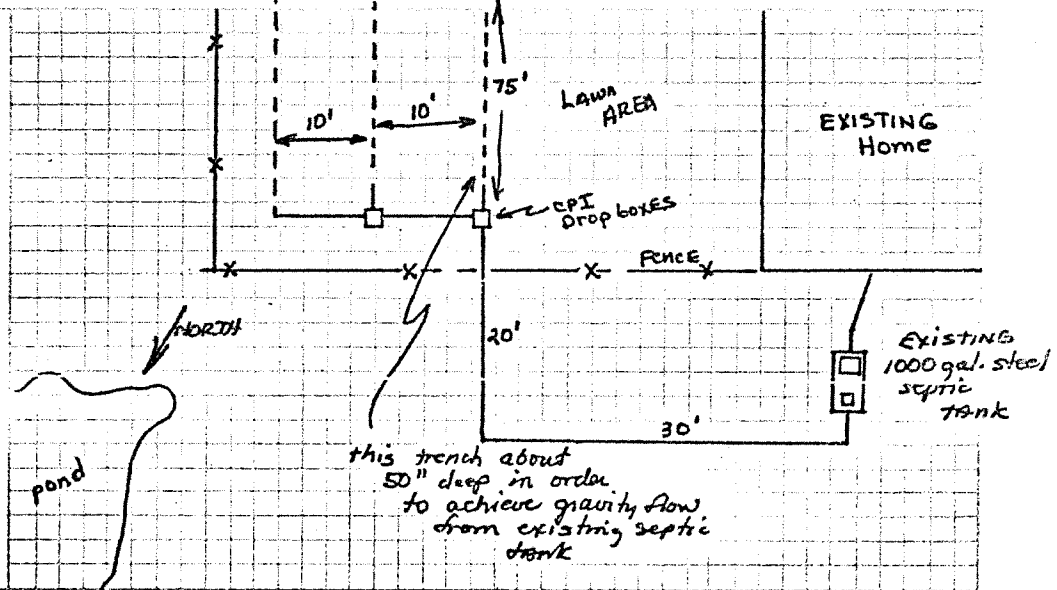 75'
LAWN
AREA
10'
10'
EXISTING
Home
CPI
Drop boxes
FENCE
NORTH
20'
EXISTING
1000 gal. steel
septic
tank
30'
this trench about
50" deep in order
to achieve gravity flow
from existing septic
tank
pond